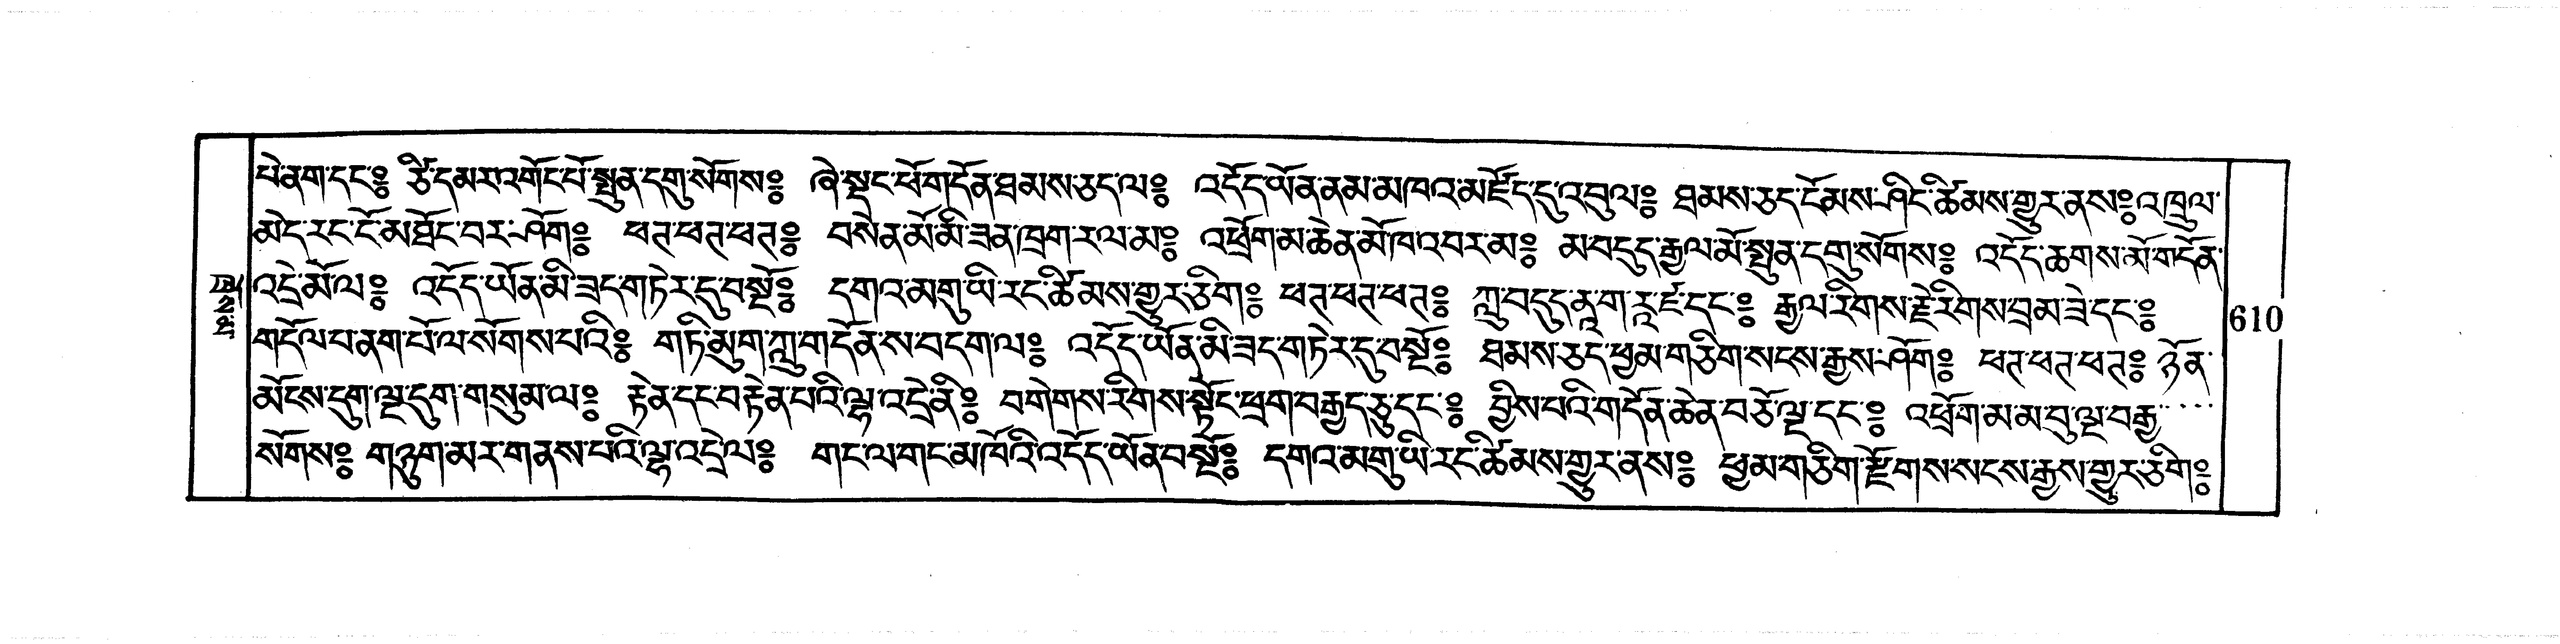 པེ་ནག་དང་༔ ཙི་དམར་འགོང་པོ་སྤུན་དགུ་སོགས༔ ཞེ་སྡང་ཕོ་གདོན་ཐམས་ཅད་ལ༔ འདོད་ཡོན་ནམ་མཁའ་མཛོད་དུ་འབུལ༔ ཐམས་ཅད་ངོམས་ཤིང་ཚིམས་གྱུར་ནས༔ འཁྲུལ་
མེད་རང་ངོ་མཐོང་བར་ཤོག༔ ཕཊ་ཕཊ་ཕཊ༔ བསེན་མོ་མི་ཟན་ཁྲག་རལ་མ༔ འཕྲོག་མ་ཆེན་མོ་ཁ་འབར་མ༔ མ་བདུད་རྒྱལ་མོ་སྤུན་དགུ་སོགས༔ འདོད་ཆགས་མོ་གདོན་
འདྲེ་མོ་ལ༔ འདོད་ཡོན་མི་ཟད་གཏེར་དུ་བསྔོ༔ དགའ་མགུ་ཡི་རང་ཚིམས་གྱུར་ཅིག༔ ཕཊ་ཕཊ་ཕཊ༔ ཀླུ་བདུད་ནཱ་ག་རཱ་ཛ་དང་༔ རྒྱལ་རིགས་རྗེ་རིགས་བྲམ་ཟེ་དང་༔
གདོལ་པ་ནག་པོ་ལ་སོགས་པའི༔ གཏི་མུག་ཀླུ་གདོན་ས་བདག་ལ༔ འདོད་ཡོན་མི་ཟད་གཏེར་དུ་བསྔོ༔ ཐམས་ཅད་ཕྱམ་གཅིག་སངས་རྒྱས་ཤོག༔ ཕཊ་ཕཊ་ཕཊ༔ ཉོན་
མོངས་དུག་ལྔ་དུག་གསུམ་ལ༔ རྟེན་དང་བརྟེན་པའི་ལྷ་འདྲེ་ནི༔ བགེགས་རིགས་སྟོང་ཕྲག་བརྒྱད་ཅུ་དང་༔ བྱིས་པའི་གདོན་ཆེན་བཅོ་ལྔ་དང་༔ འཕྲོག་མ་མ་བུ་ལྔ་བརྒྱ་
སོགས༔ གཉུག་མར་གནས་པའི་ལྷ་འདྲེ་ལ༔ གང་ལ་གང་མཁོའི་འདོད་ཡོན་བསྔོ༔ དགའ་མགུ་ཡི་རང་ཚིམས་གྱུར་ནས༔ ཕྱམ་གཅིག་རྫོགས་སངས་རྒྱས་གྱུར་ཅིག༔
610